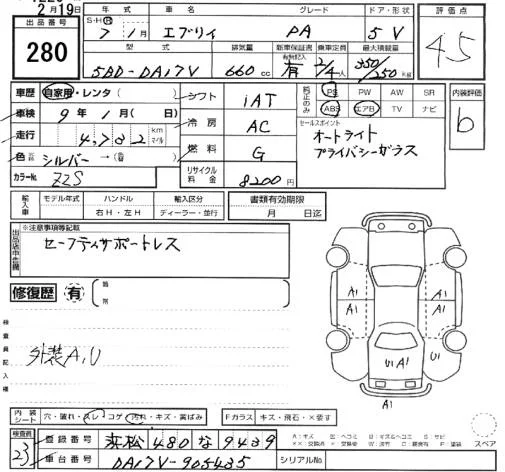 2月19日
出品番号
280
年式 車名 グレード ドア・形状
S・H・R 7 1月 エブリイ PA 5 V
型式 排気量 新車保証書 乗車定員 最大積載量
5BD-DA17V 660 cc 有無記入 有 2/4人 350/250kg
評価点
4.5
車歴 自家用・レンタ( )
車検 9年 1月( 日)
走行 4,782 km マイル
色 元色 シルバー→(色)
カラーNo. Z2S
シフト iAT
冷房 AC
燃料 G
リサイクル料金 8200円
純正のみ PS PW AW SR
ABS エアB TV ナビ
セールスポイント
オートライト
プライバシーガラス
内装評価
b
輸入車 モデル年式 ハンドル 右H・左H 輸入区分 ディーラー・並行
書類有効期限
月 日迄
出品店申告欄
※注意事項等記載
セーフティサポートレス
修復歴 有 箇所
検査員記入欄
外装A,U
A1 A1
A1 A1
U1 A1 U1
A1
スペア
内装シート 穴・破れ・スレ・コゲ・汚れ・キズ・黄ばみ
Fガラス キズ・飛石・X要す
検査員
23
登録番号 浜松 480 な 9439
車台番号 DA17V-905435
シリアルNo.